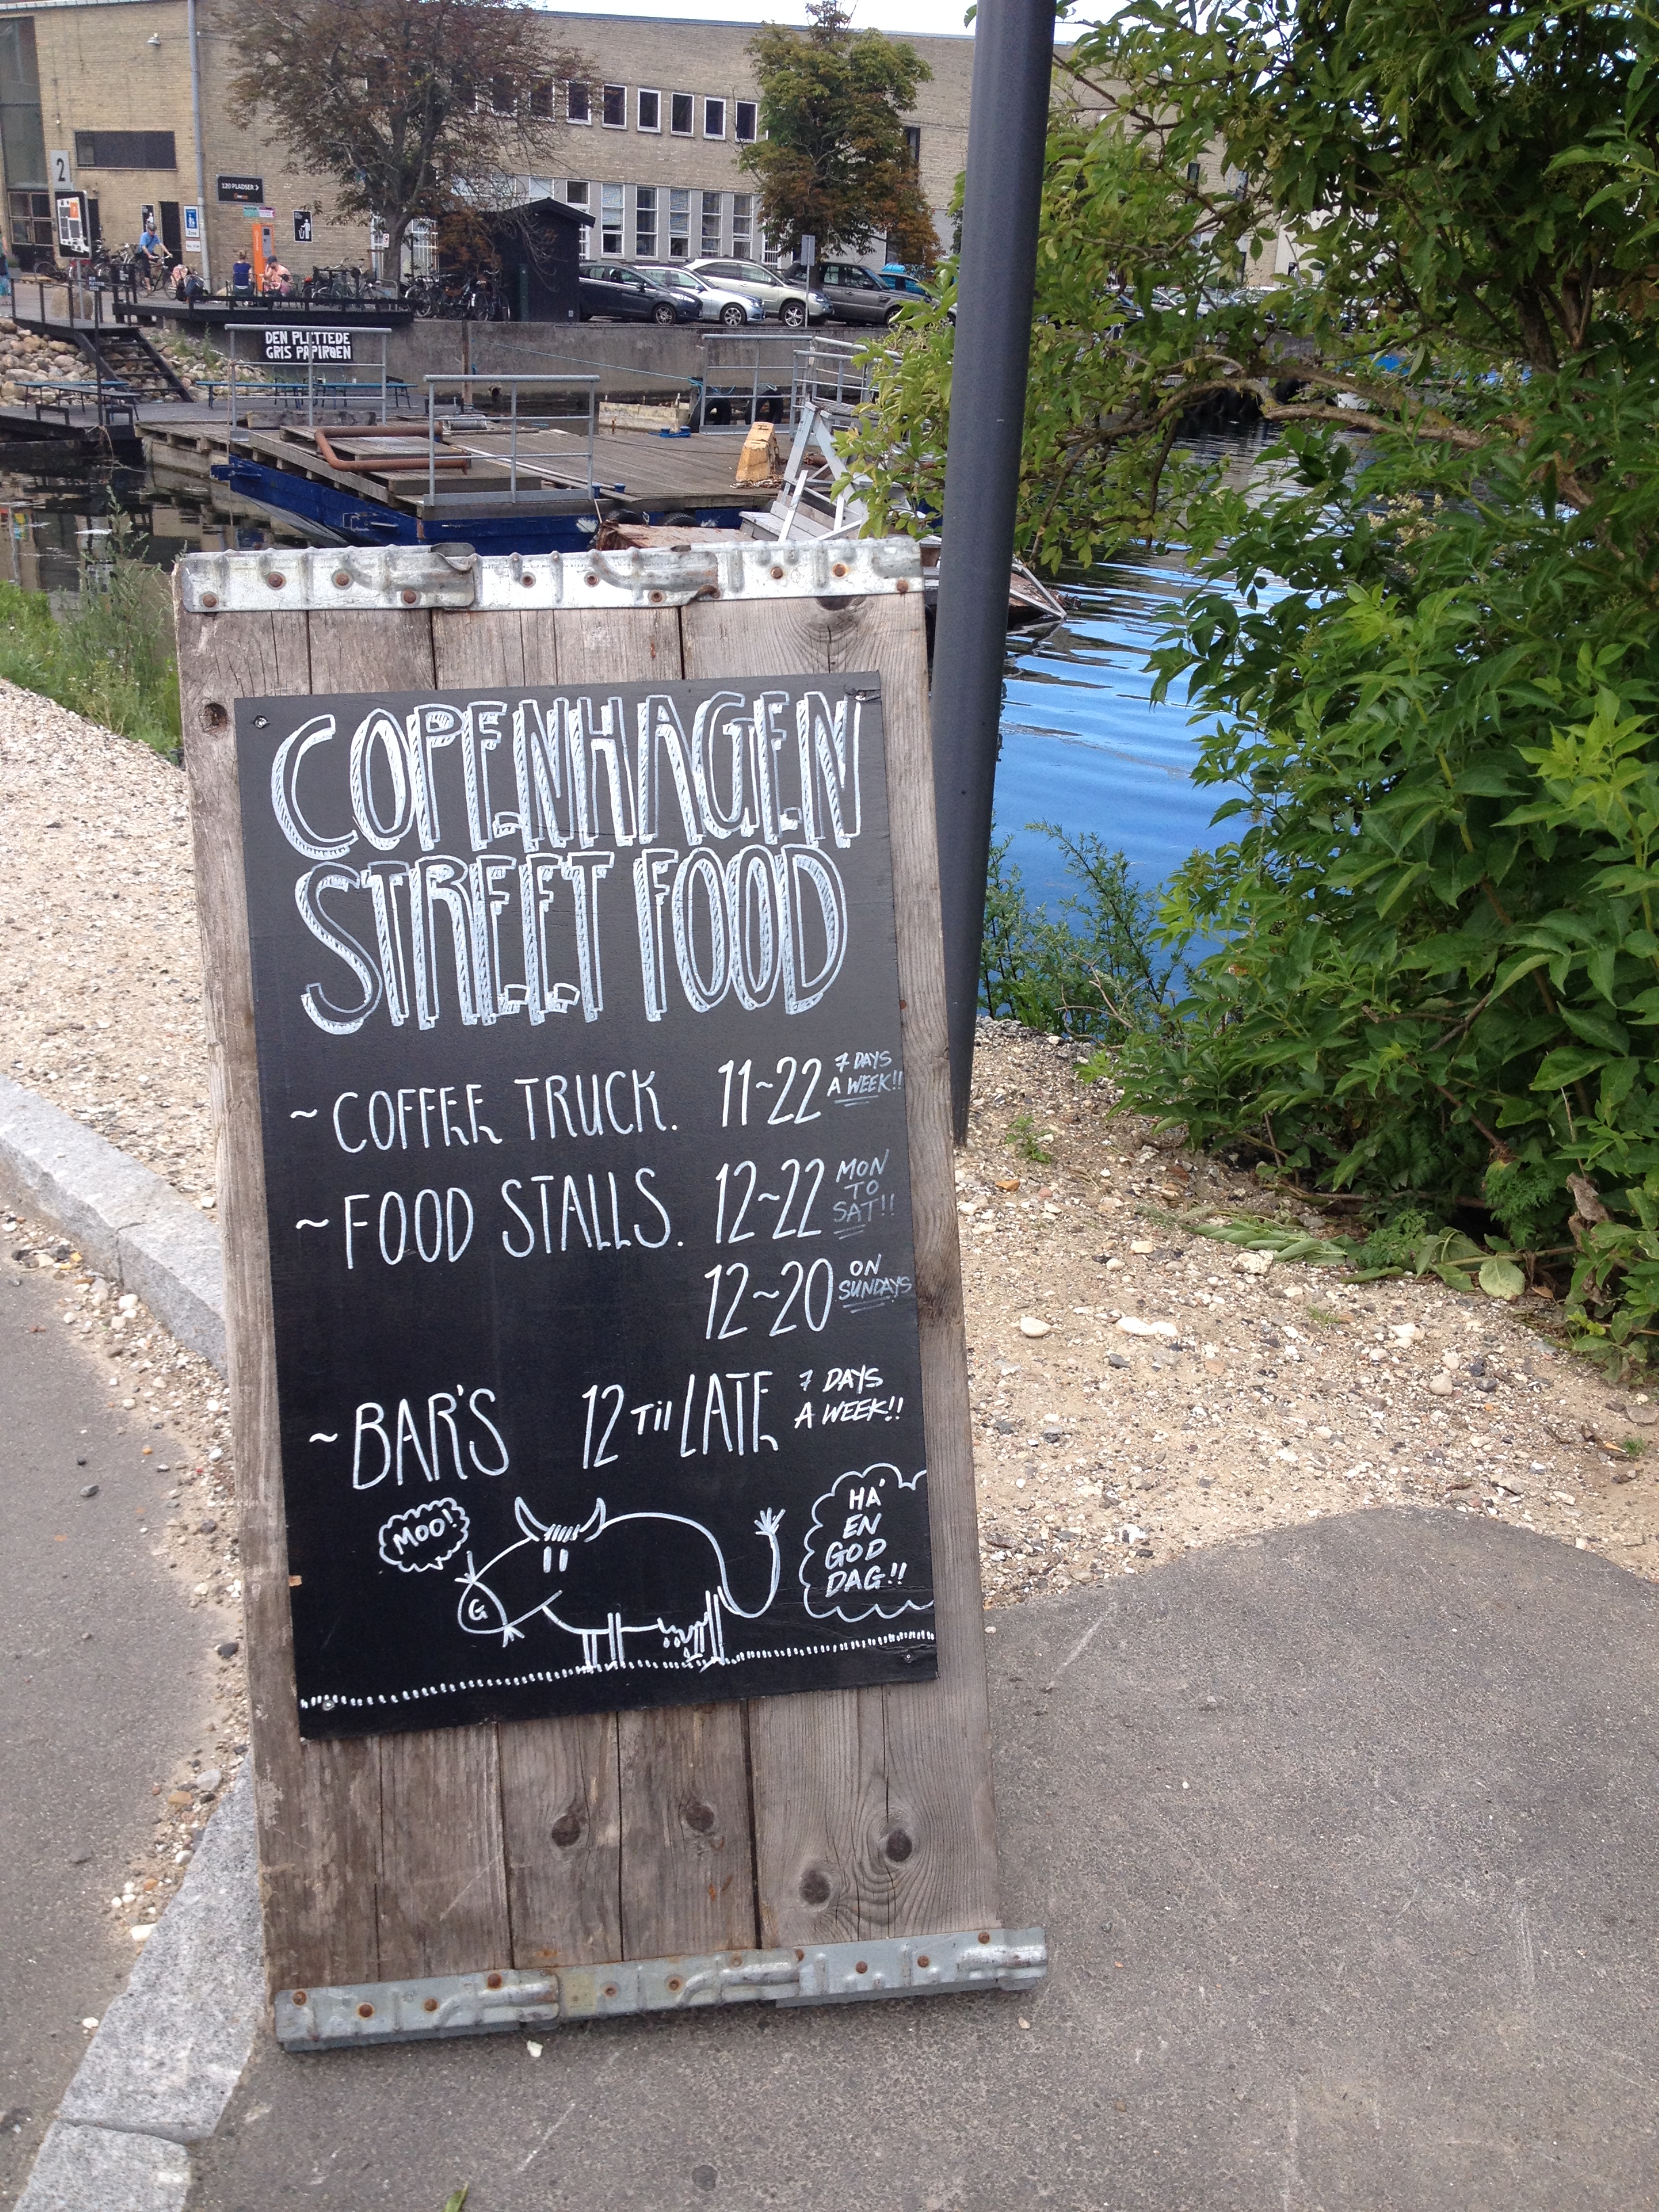 2
120 PLADSER >
DEN PLETTEDE
GRIS PAPIRØEN
COPENHAGEN
STREET FOOD
~ COFFEE TRUCK. 11~22 7 DAYS
A WEEK!!
~ FOOD STALLS. 12~22 MON
TO
SAT!!
12~20 ON
SUNDAYS
~ BAR'S 12 Till LATE 7 DAYS
A WEEK!!
MOO!
G
HA'
EN
GOD
DAG!!